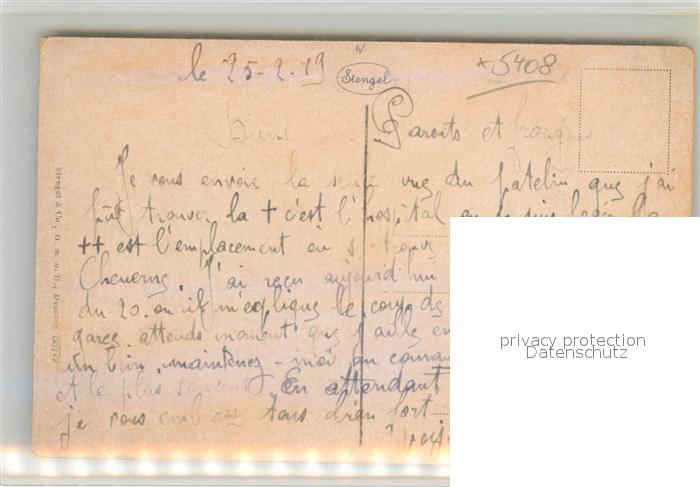 le 25-2.19
Stengel
*5408
Biens Parents et frangins
Je vous envois la seule vue du patelin que j'ai
pût trouver la + c'est l'hospital ou je suis
++ est l'emplacement où se trouve
J'ai reçu aujourd'hui
du 20. ou il m'explique le coup de
gares. attends moment que j'aille en
un bien, maintenez-moi au courant
et le plus En attendant
je vous embrasse tous bien fort
Stengel & Co., G. m. b. H., Dresden
privacy protection
Datenschutz